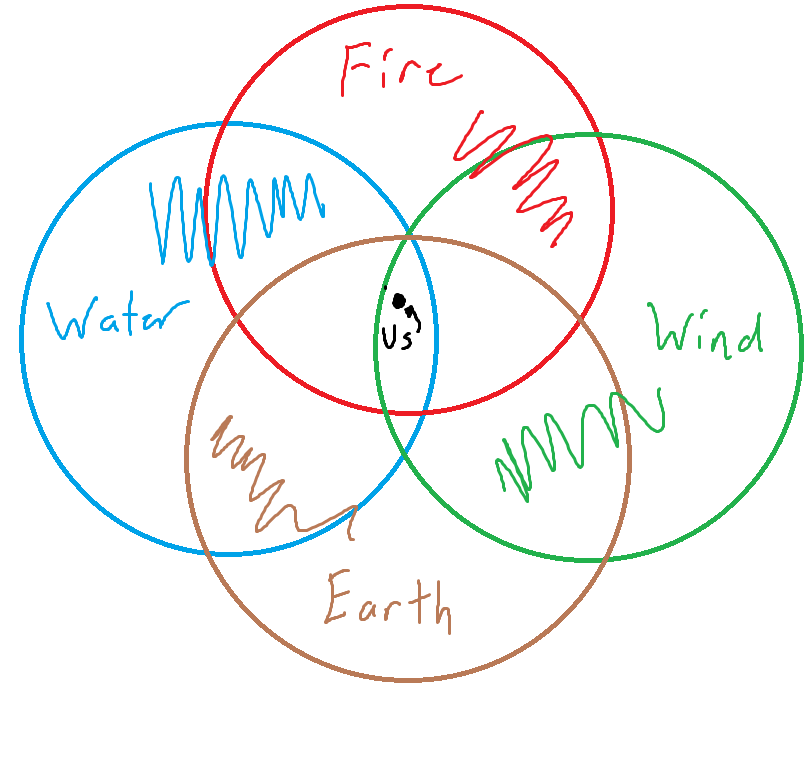 Fire
Water
Wind
Us
Earth